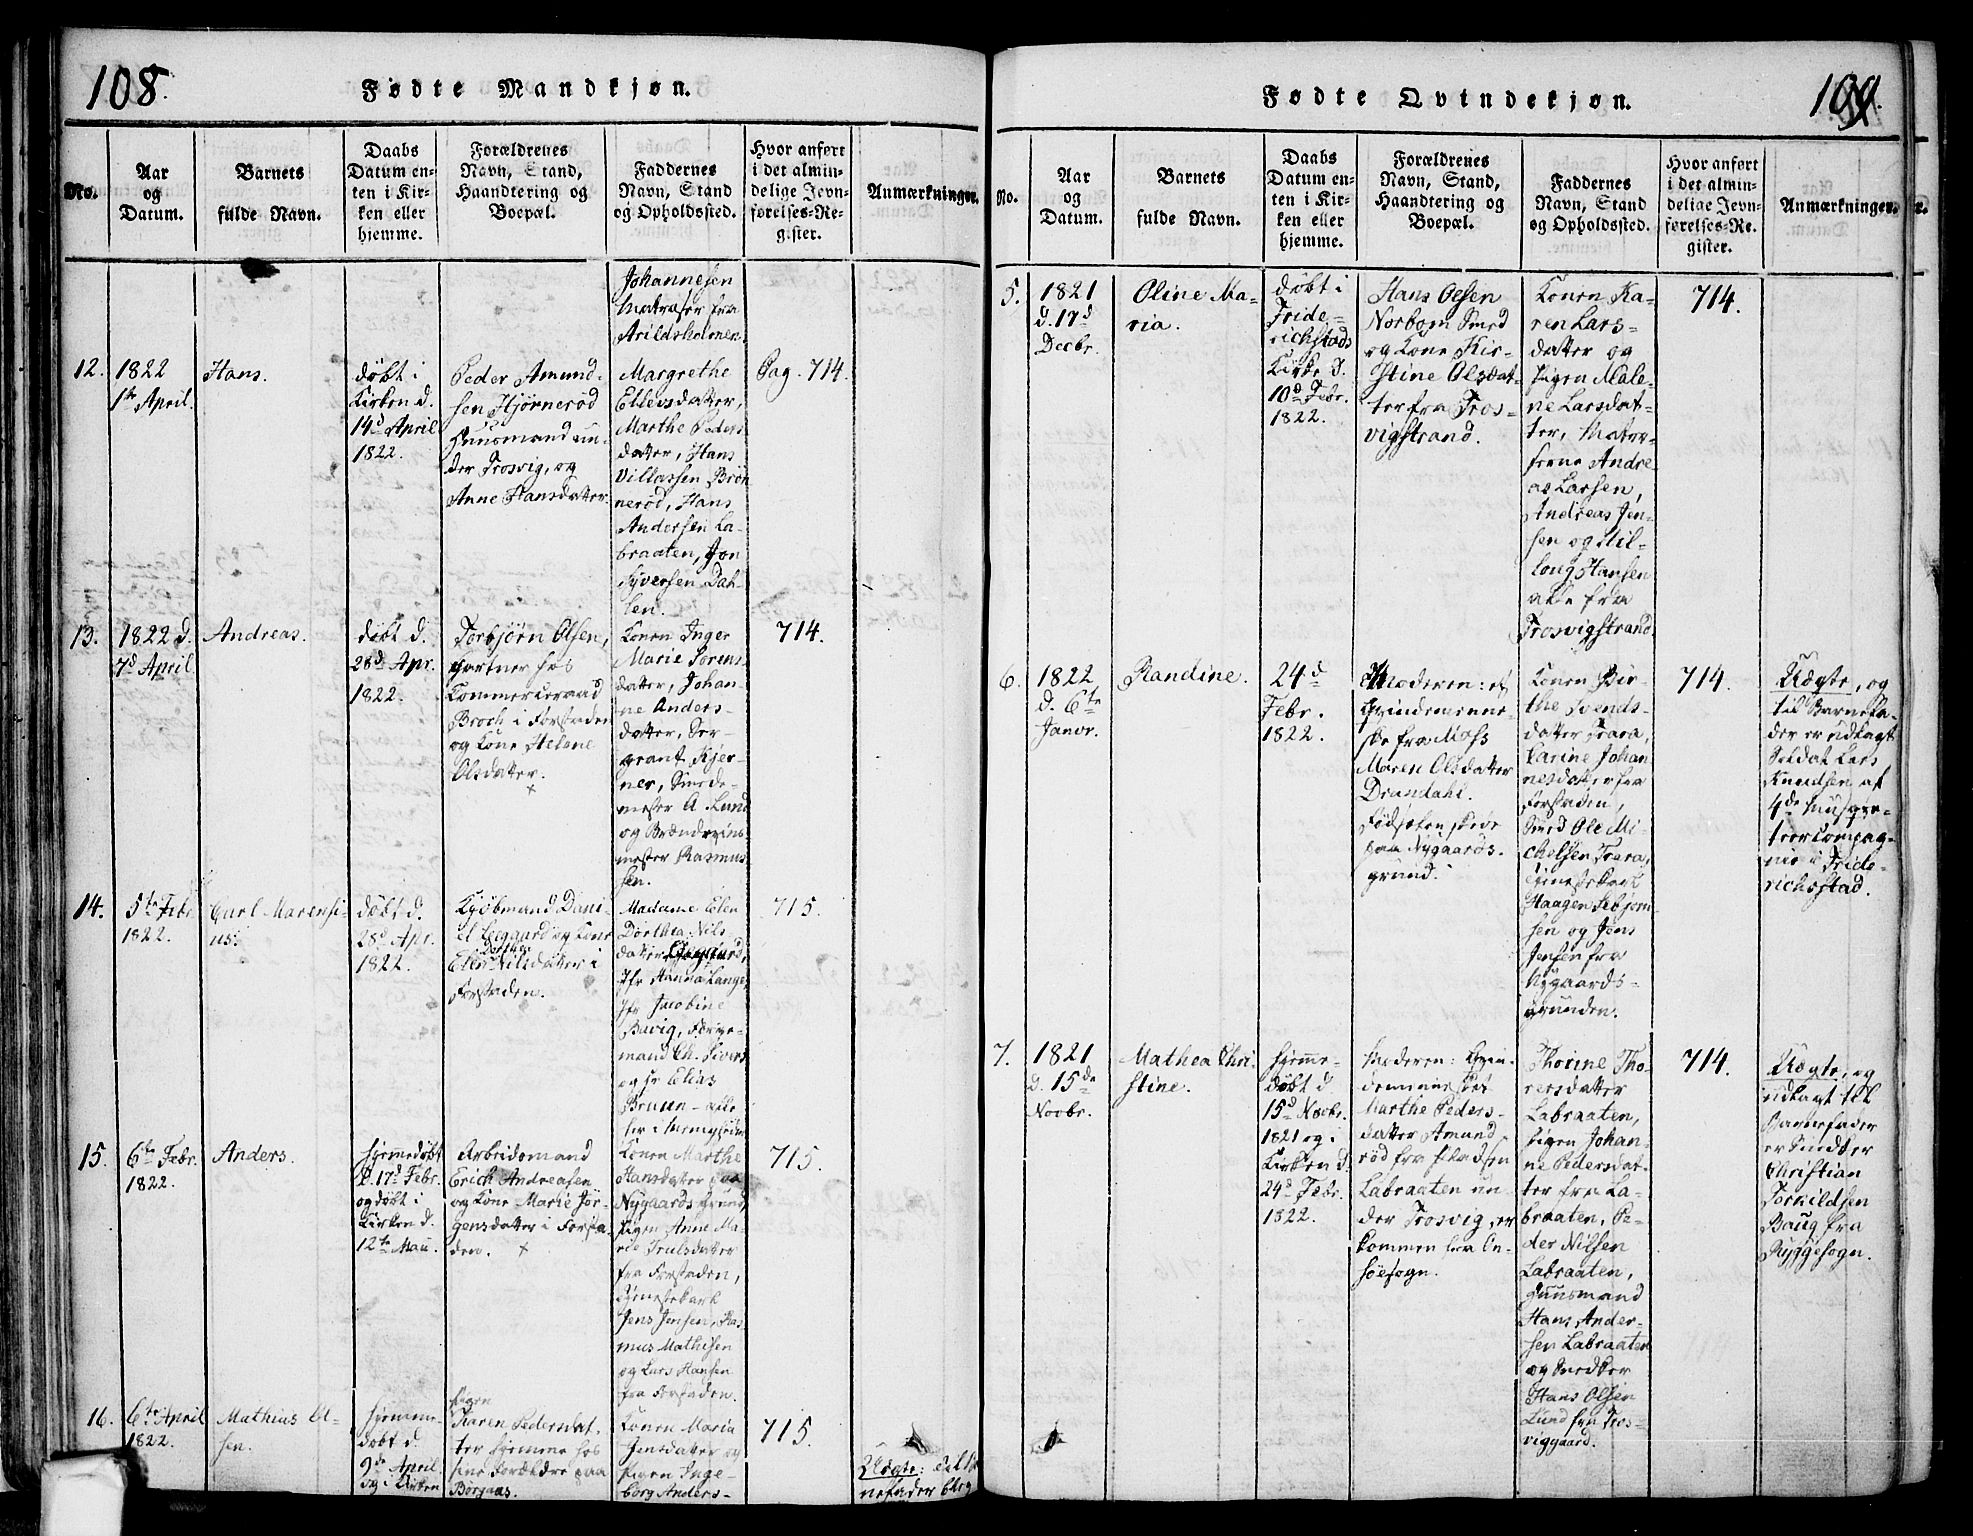 108.
Fødte Mandkjøn.
No.
Aar
og
Datum.
Barnets
fulde Navn.
Daabs
Datum en-
ten i Kir-
ken eller
hjemme.
Forældrenes
Navn, Stand,
Haandtering og
Boepæl.
Faddernes
Navn, Stand
og Opholdssted.
Hvor anført
i det almin-
delige Jevn-
førelses-Re-
gister.
Anmærkninger.
Johannesen
Matroser fra
Arildsholmen
12.
1822
1te April.
Hans.
døbt i
Kirken d.
14d April
1822.
Peder Amund-
sen Hjørnerød
Huusmand un-
der Trosvig, og
Anne Hansdatter.
Margrethe
Ellevsdatter,
Marthe Peders
datter, Hans
Villassen Brøn
nerød, Hans
Andersen La-
braaten, Jon
Syversen Dah-
len.
Pag. 714.
13.
1822 d.
7d April
Andreas.
døbt d.
28d Apr.
1822.
Torbjørn Olsen,
Gartner hos
Kommerceraad
Broch i Forstaden
og Kone Helene
Olsdatter.
+
Konen Inger
Marie Sørens-
datter, Johan-
ne Anders-
datter, Ser-
geant Kjer-
ner, Smede-
mester A. Lund
og Brændeviins
mester Rasmus
sen.
714.
14.
5te Febr
1822.
Carl Marensi-
us.
døbt d.
28d Apr.
1822.
Kjøbmand Dani-
el Leegaard og Kone
Dorthea
Elen Nilsdatter i
Forstaden.
Madame Elen
Dorthea Nils-
datter Leegaard,
Jfr Hanna Lange,
Jfr Jacobine
Bavig, Færge-
mand Ch. Sivers
og Sr Elias
Bruun - alle
her i Menigheden
715.
15.
6te Febr.
1822.
Anders.
hjemmedøbt
d. 17d Febr.
og døbt i
Kirken d.
12te Mai.
Arbeidsmand
Erich Andreasen
og Kone Marie Jør-
gensdatter i Forsta-
den. +
Konen Marthe
Hansdatter paa
Nygaards Grund,
Pigen Anne Ma-
rie Trulsdatter
fra Forstaden,
Tjenestekarl
Jens Jensen, Ras
mus Mathisen
og Lars Hansen
fra Forstaden.
715.
16.
6te April
1822.
Mathias Ol-
sen.
hjemme-
døbt d.
9de April
og i Kirken
Pigen
Karen Pedersdat-
ter hjemme hos
sine Forældre paa
Borgaas.
Konen Maria
Jensdatter og
Pigen Inge-
borg Anders-
715.
Uægte:
109.
Fødte Qvindekjøn.
No.
Aar
og
Datum.
Barnets
fulde Navn.
Daabs
Datum en-
ten i Kir-
ken eller
hjemme.
Forældrenes
Navn, Stand,
Haandtering og
Boepæl.
Faddernes
Navn, Stand
og Opholdssted.
Hvor anført
i det almin-
delige Jevn-
førelses-Re-
gister.
Anmærkninger.
5.
1821
d. 17d
Decbr.
Oline Ma-
ria.
døbt i
Fride-
richstads
Kirke d.
10d Febr.
1822.
Hans Olsen
Norbom Smed
og Kone Kir-
stine Olsdat-
ter fra Tros-
vigstrand.
Konen Ka-
ren Lars-
datter og
Pigen Male-
ne Larsdat-
ter, Matro-
serne Andre-
as Larsen,
Andreas Jen-
sen og Nil-
Hansen
alle fra
Trosvigstrand.
714.
6.
1822
d. 6te
Janvr.
Randine.
24d
Febr.
1822.
Moderen: et
Qvindemenne-
ske fra Moss
Maren Olsdatter
Drandahl.
Fødselen skede
paa Nygaards-
grund.
Konen Bir-
the Svends-
datter Trara,
Karine Johan
nesdatter fra
Forstaden,
Smed Ole Mi-
chelsen Trara,
Tjenestekarl
Haagen Esbjørn-
sen og Jens
Jensen fra
Nygaards-
grunden.
714.
Uægte, og
til Barnefa-
der er udlagt
Soldat Lars
Knudsen af
4de Musque-
teercompag-
nie i Fride-
richsstad.
7.
1821
d. 15de
Novbr.
Mathea Chri-
stine.
hjemme-
døbt d
15d Novbr.
1821 og i
Kirken d.
24d Febr.
1822.
Moderen: Qvin-
demennesket
Marthe Peders-
datter Amund-
rød fra Pladsen
Labraaten un-
der Trosvig, er
kommen fra On-
søesogn.
Thorine Tho-
resdatter
Labraaten,
Pigen Johan-
ne Pedersdat-
ter fra La-
braaten, Pe-
der Nilsen
Labraaten,
Huusmand
Hans Ander-
sen Labraaten
og Snedker
Hans Olsen
Lund fra Tros-
viggaard.
714.
Uægte, og
udlagt til
Barnefader
er Snedker
Christian
Torkildsen
Baug fra
Ryggesogn.